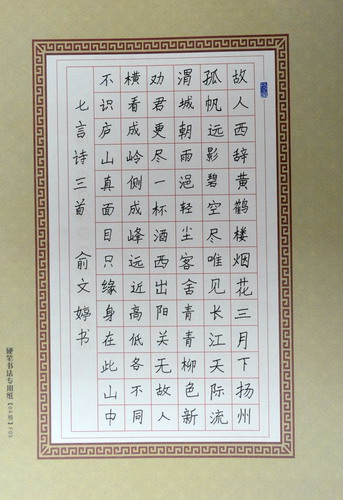 故人西辞黄鹤楼烟花三月下扬州
孤帆远影碧空尽唯见长江天际流
渭城朝雨浥轻尘客舍青青柳色新
劝君更尽一杯酒西出阳关无故人
横看成岭侧成峰远近高低各不同
不识庐山真面目只缘身在此山中
七言诗三首 俞文婷书
硬笔书法专用纸